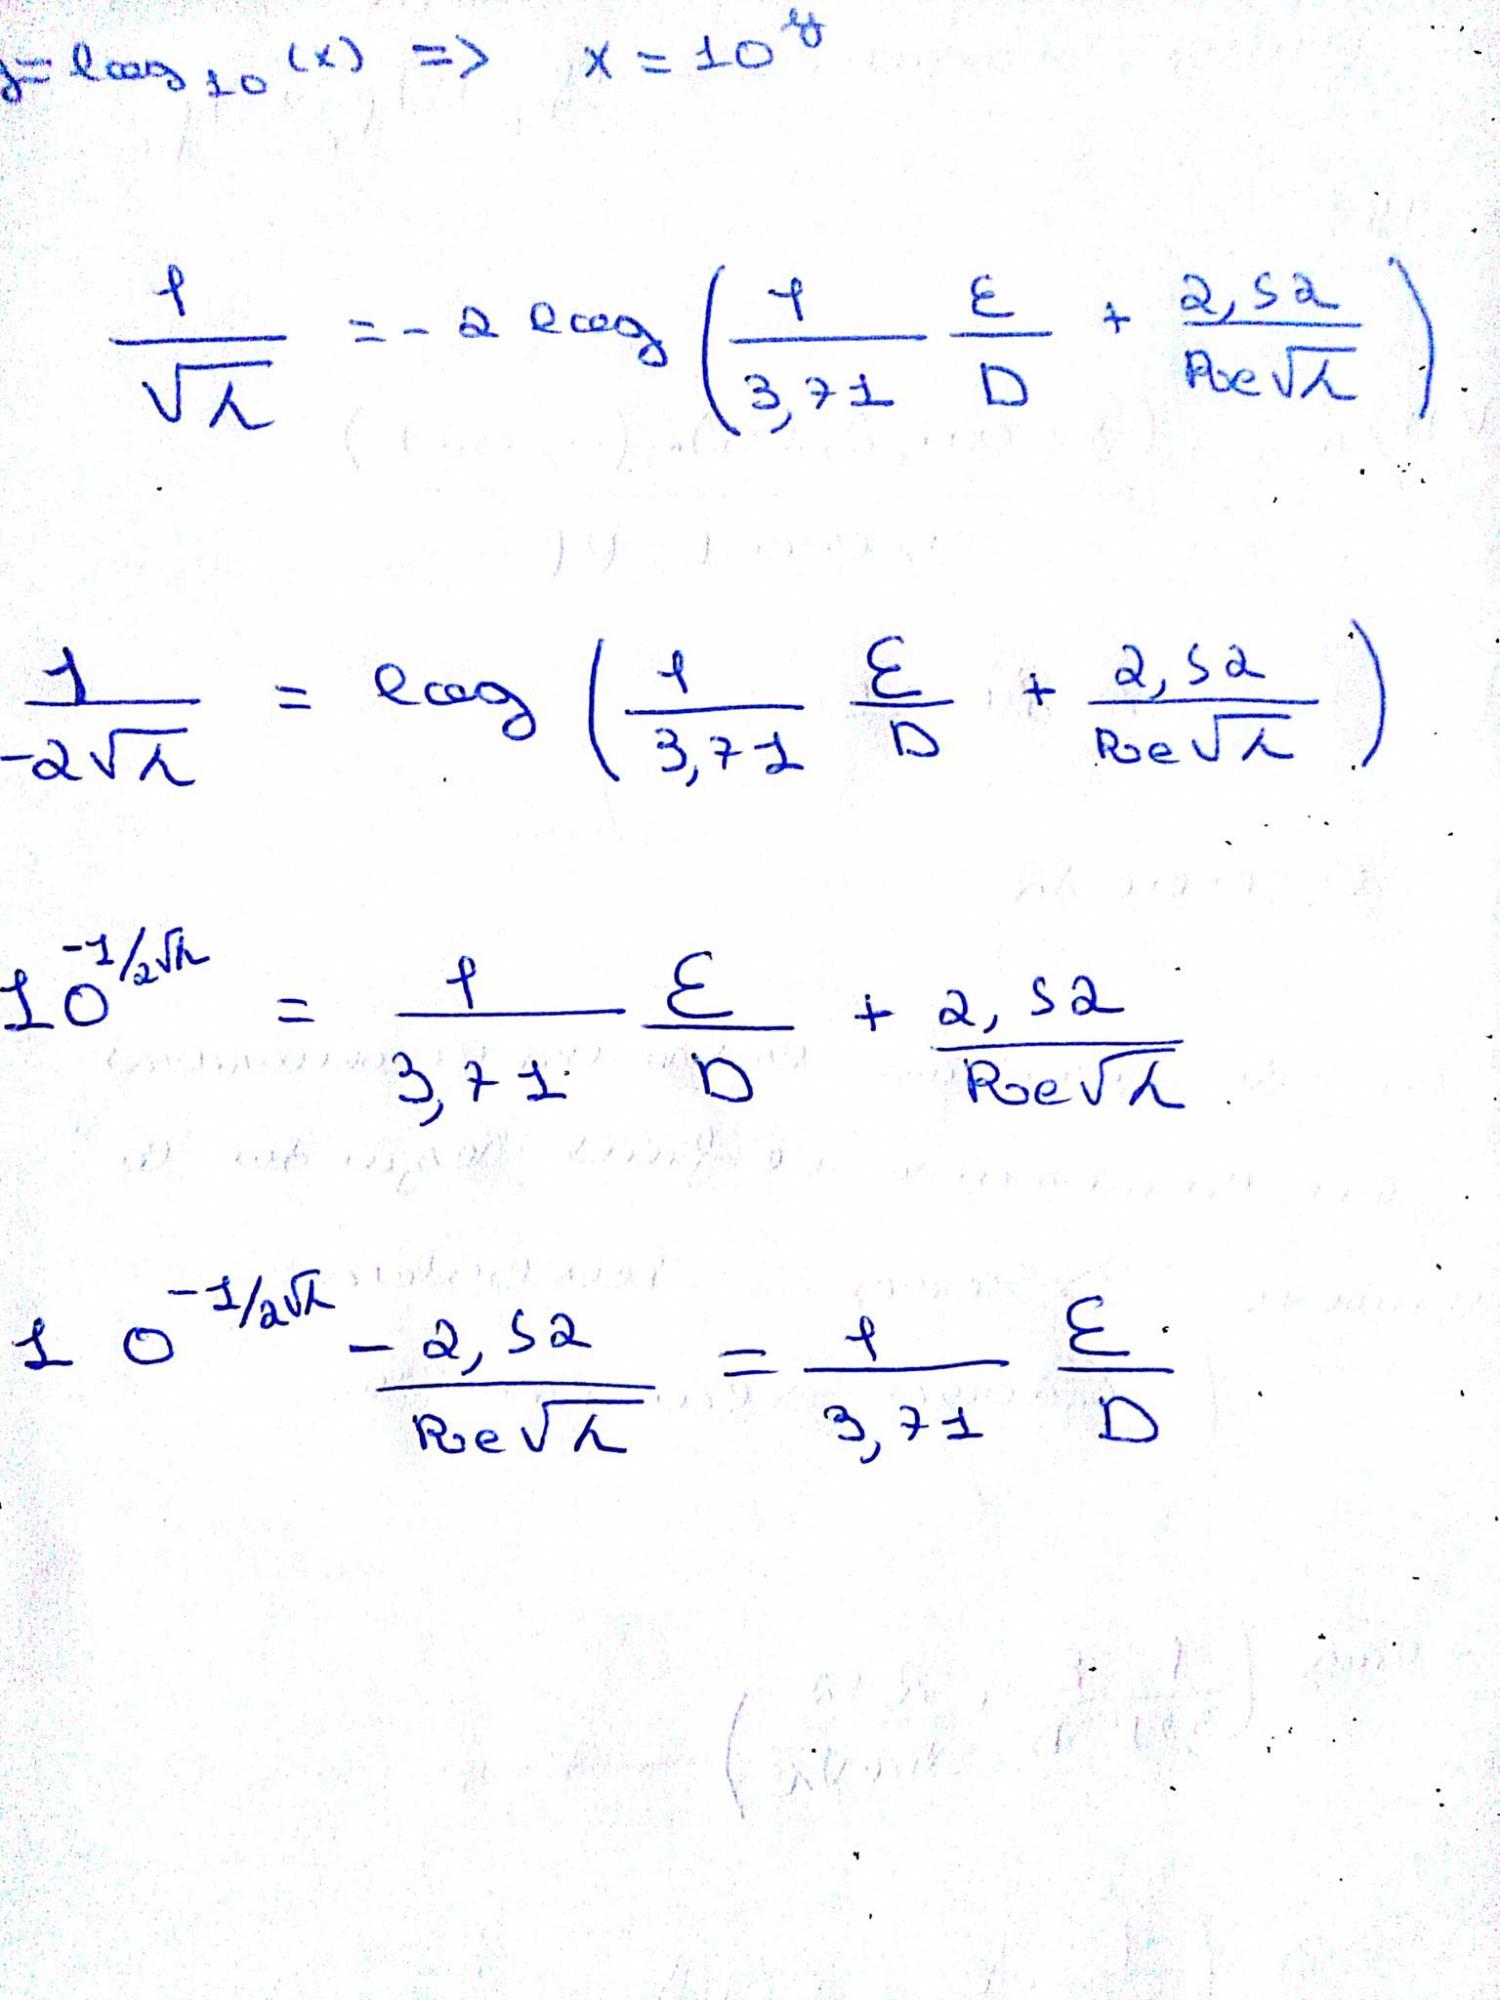 y = log₁₀(x) => x = 10^y
1/√λ = -2 log (1/3,71 ε/D + 2,52/Re√λ)
1/-2√λ = log (1/3,71 ε/D + 2,52/Re√λ)
10^(-1/2√λ) = 1/3,71 ε/D + 2,52/Re√λ
10^(-1/2√λ) - 2,52/Re√λ = 1/3,71 ε/D